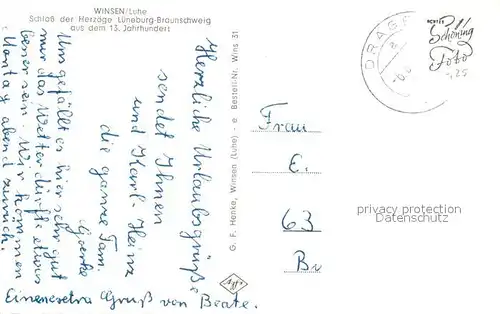 WINSEN/Luhe
Schloß der Herzöge Lüneburg-Braunschweig
aus dem 13. Jahrhundert
Herzliche Urlaubsgrüße
sendet Ihnen
und Karl-Heinz
die ganze Fam.
Uns gefällt es hier sehr gut
nur das Wetter dürfte etwas
besser sein. Wir kommen
Montag abend zurück.
Einen extra Gruß von Beate.
G. F. Henke, Winsen (Luhe) - e Bestell-Nr. Wins 31
Agfa
DRAGE
a
Schöning
Foto
Frau
E.
63
privacy protection
Datenschutz